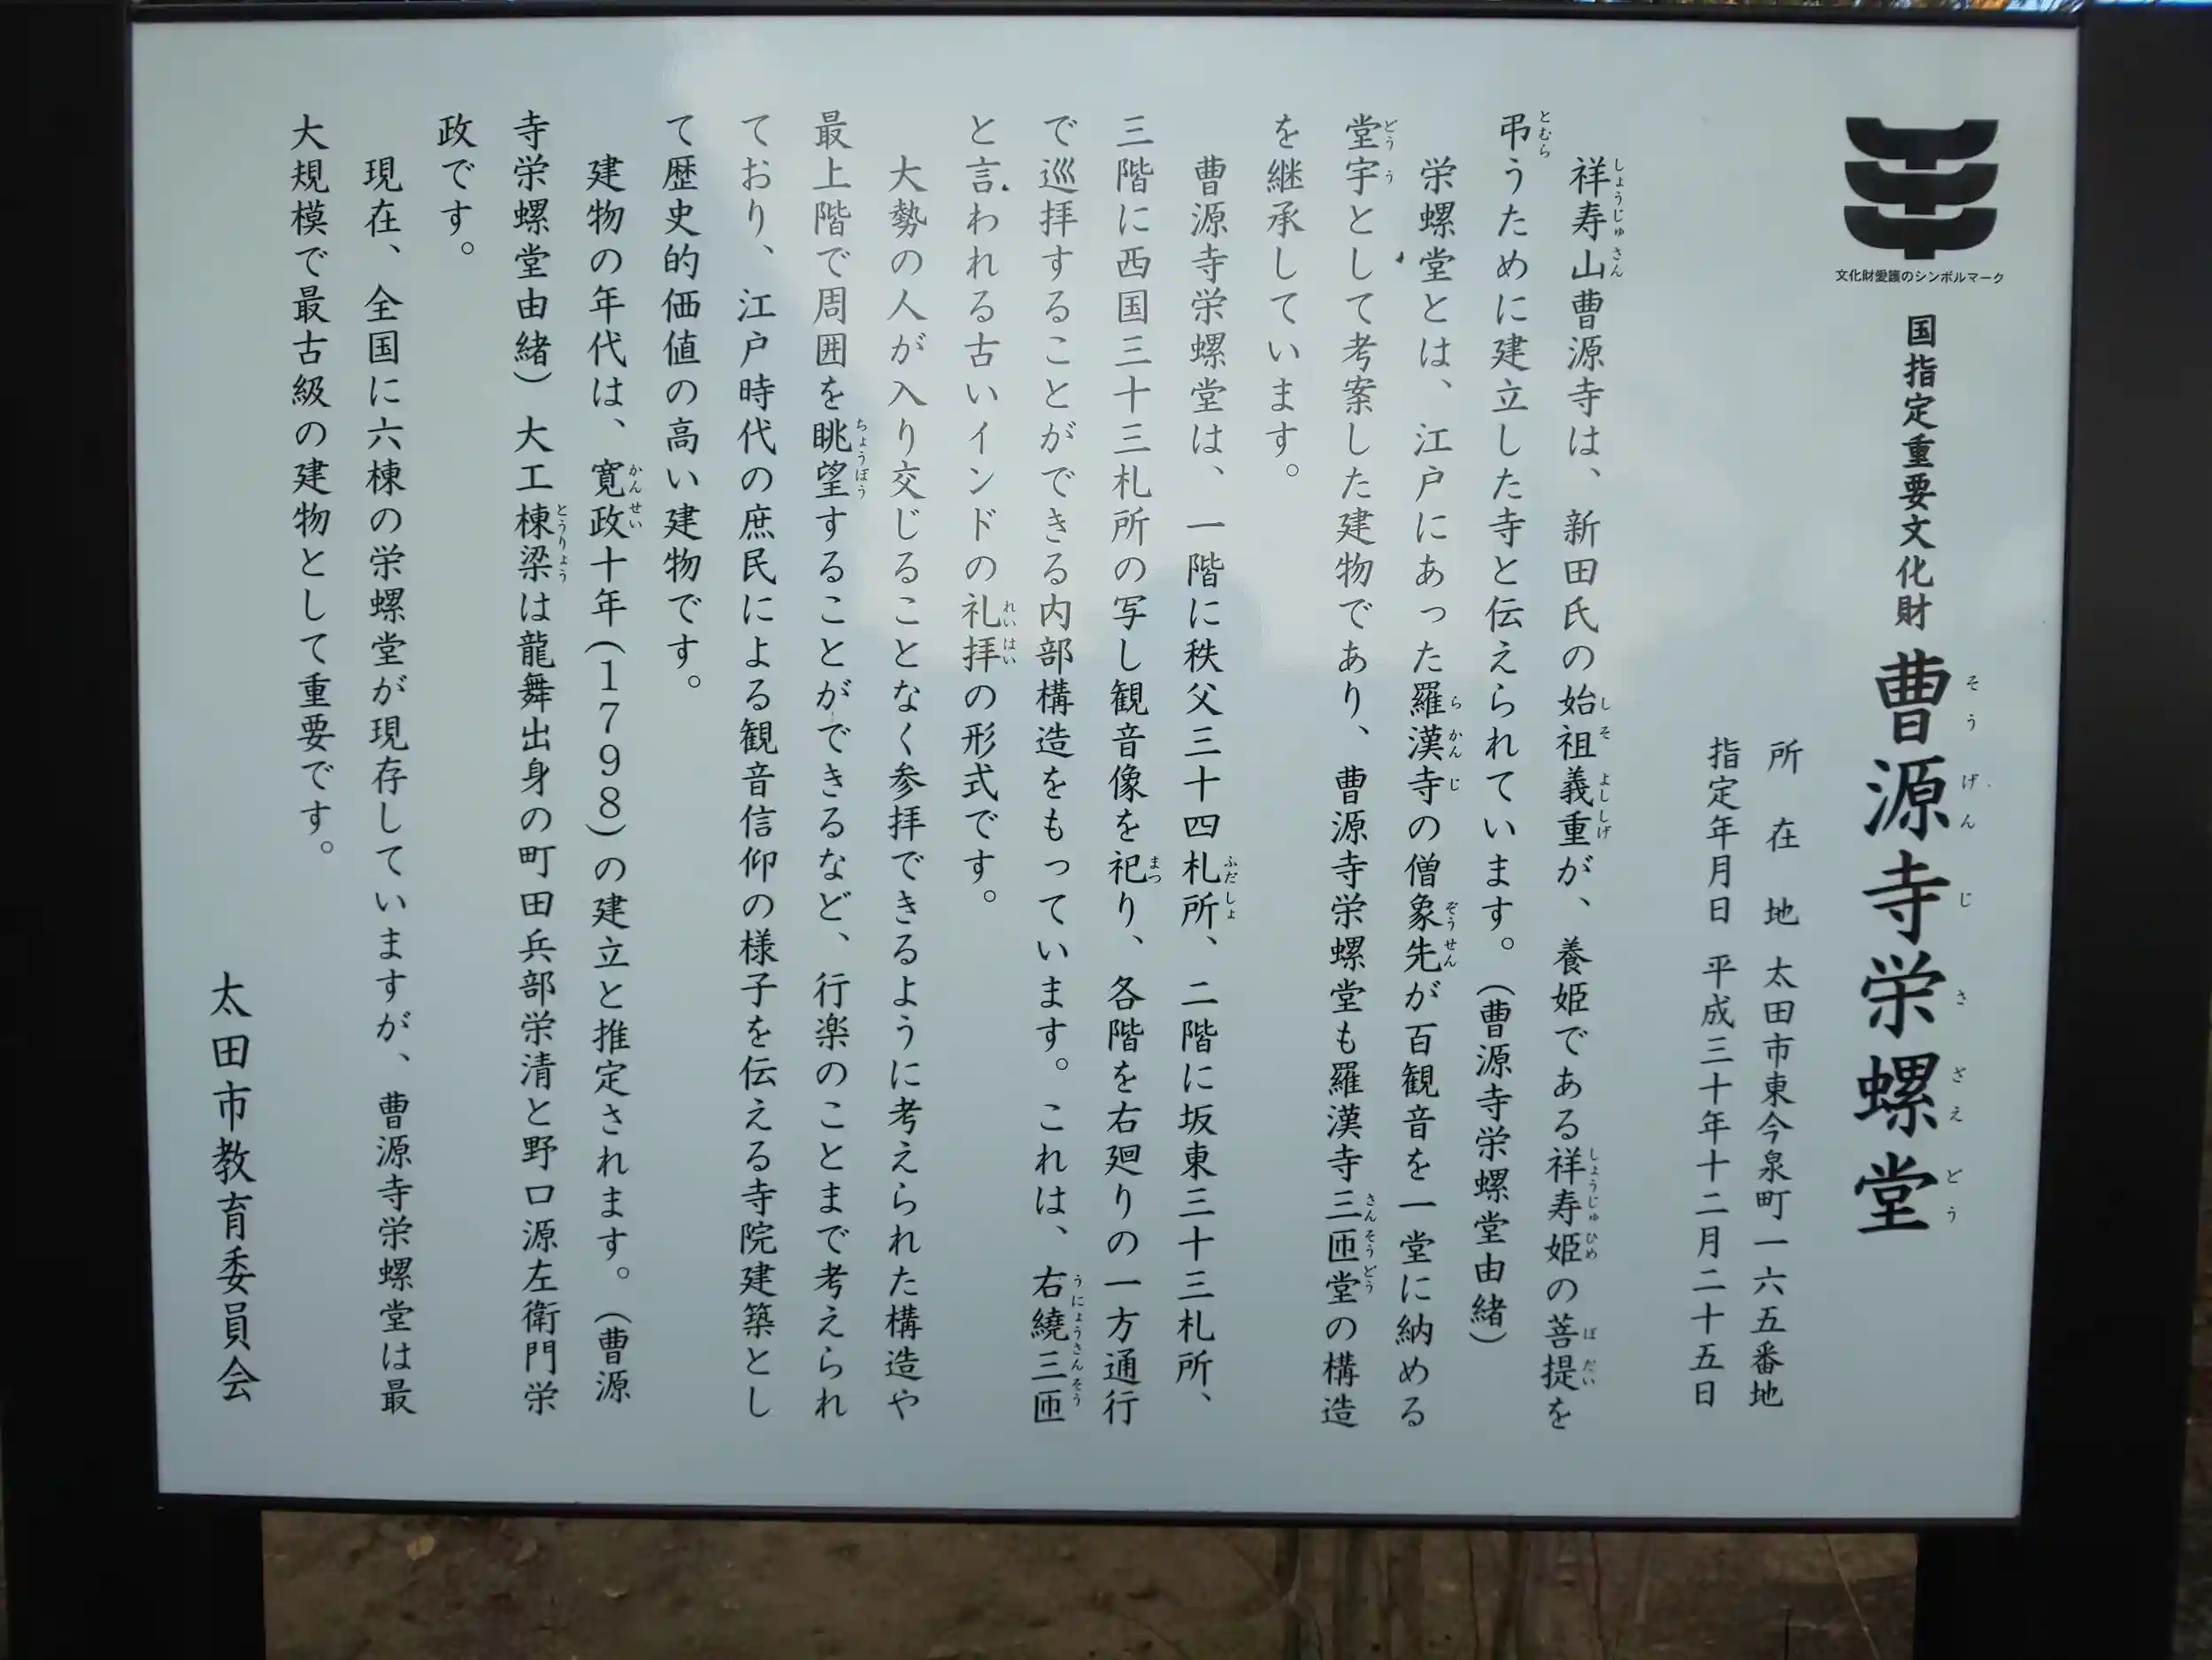 文化財愛護のシンボルマーク
国指定重要文化財 曹源寺栄螺堂
そうげんじさざえどう
所在地 太田市東今泉町一六五番地
指定年月日 平成三十年十二月二十五日
祥寿山曹源寺は、新田氏の始祖義重が、養姫である祥寿姫の菩提を
しょうじゅさん しそ よししげ しょうじゅひめ ぼだい
弔うために建立した寺と伝えられています。(曹源寺栄螺堂由緒)
とむら
栄螺堂とは、江戸にあった羅漢寺の僧象先が百観音を一堂に納める
らかんじ ぞうせん
堂宇として考案した建物であり、曹源寺栄螺堂も羅漢寺三匝堂の構造
どうう さんそうどう
を継承しています。
曹源寺栄螺堂は、一階に秩父三十四札所、二階に坂東三十三札所、
ふだしょ
三階に西国三十三札所の写し観音像を祀り、各階を右廻りの一方通行
まつ
で巡拝することができる内部構造をもっています。これは、右繞三匝
うにょうさんそう
と言われる古いインドの礼拝の形式です。
れいはい
大勢の人が入り交じることなく参拝できるように考えられた構造や
最上階で周囲を眺望することができるなど、行楽のことまで考えられ
ちょうぼう
ており、江戸時代の庶民による観音信仰の様子を伝える寺院建築とし
て歴史的価値の高い建物です。
建物の年代は、寛政十年(1798)の建立と推定されます。(曹源
かんせい
寺栄螺堂由緒)大工棟梁は龍舞出身の町田兵部栄清と野口源左衛門栄
とうりょう
政です。
現在、全国に六棟の栄螺堂が現存していますが、曹源寺栄螺堂は最
大規模で最古級の建物として重要です。
太田市教育委員会